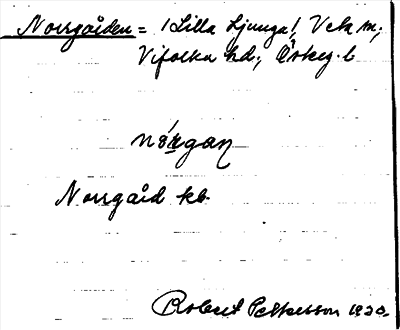 Norrgården = (Lilla Ljunga), Veta sn;
Vifolka hd; Östeg. l
nórgan
Norrgård kb.
Robert Pettersson 1930.